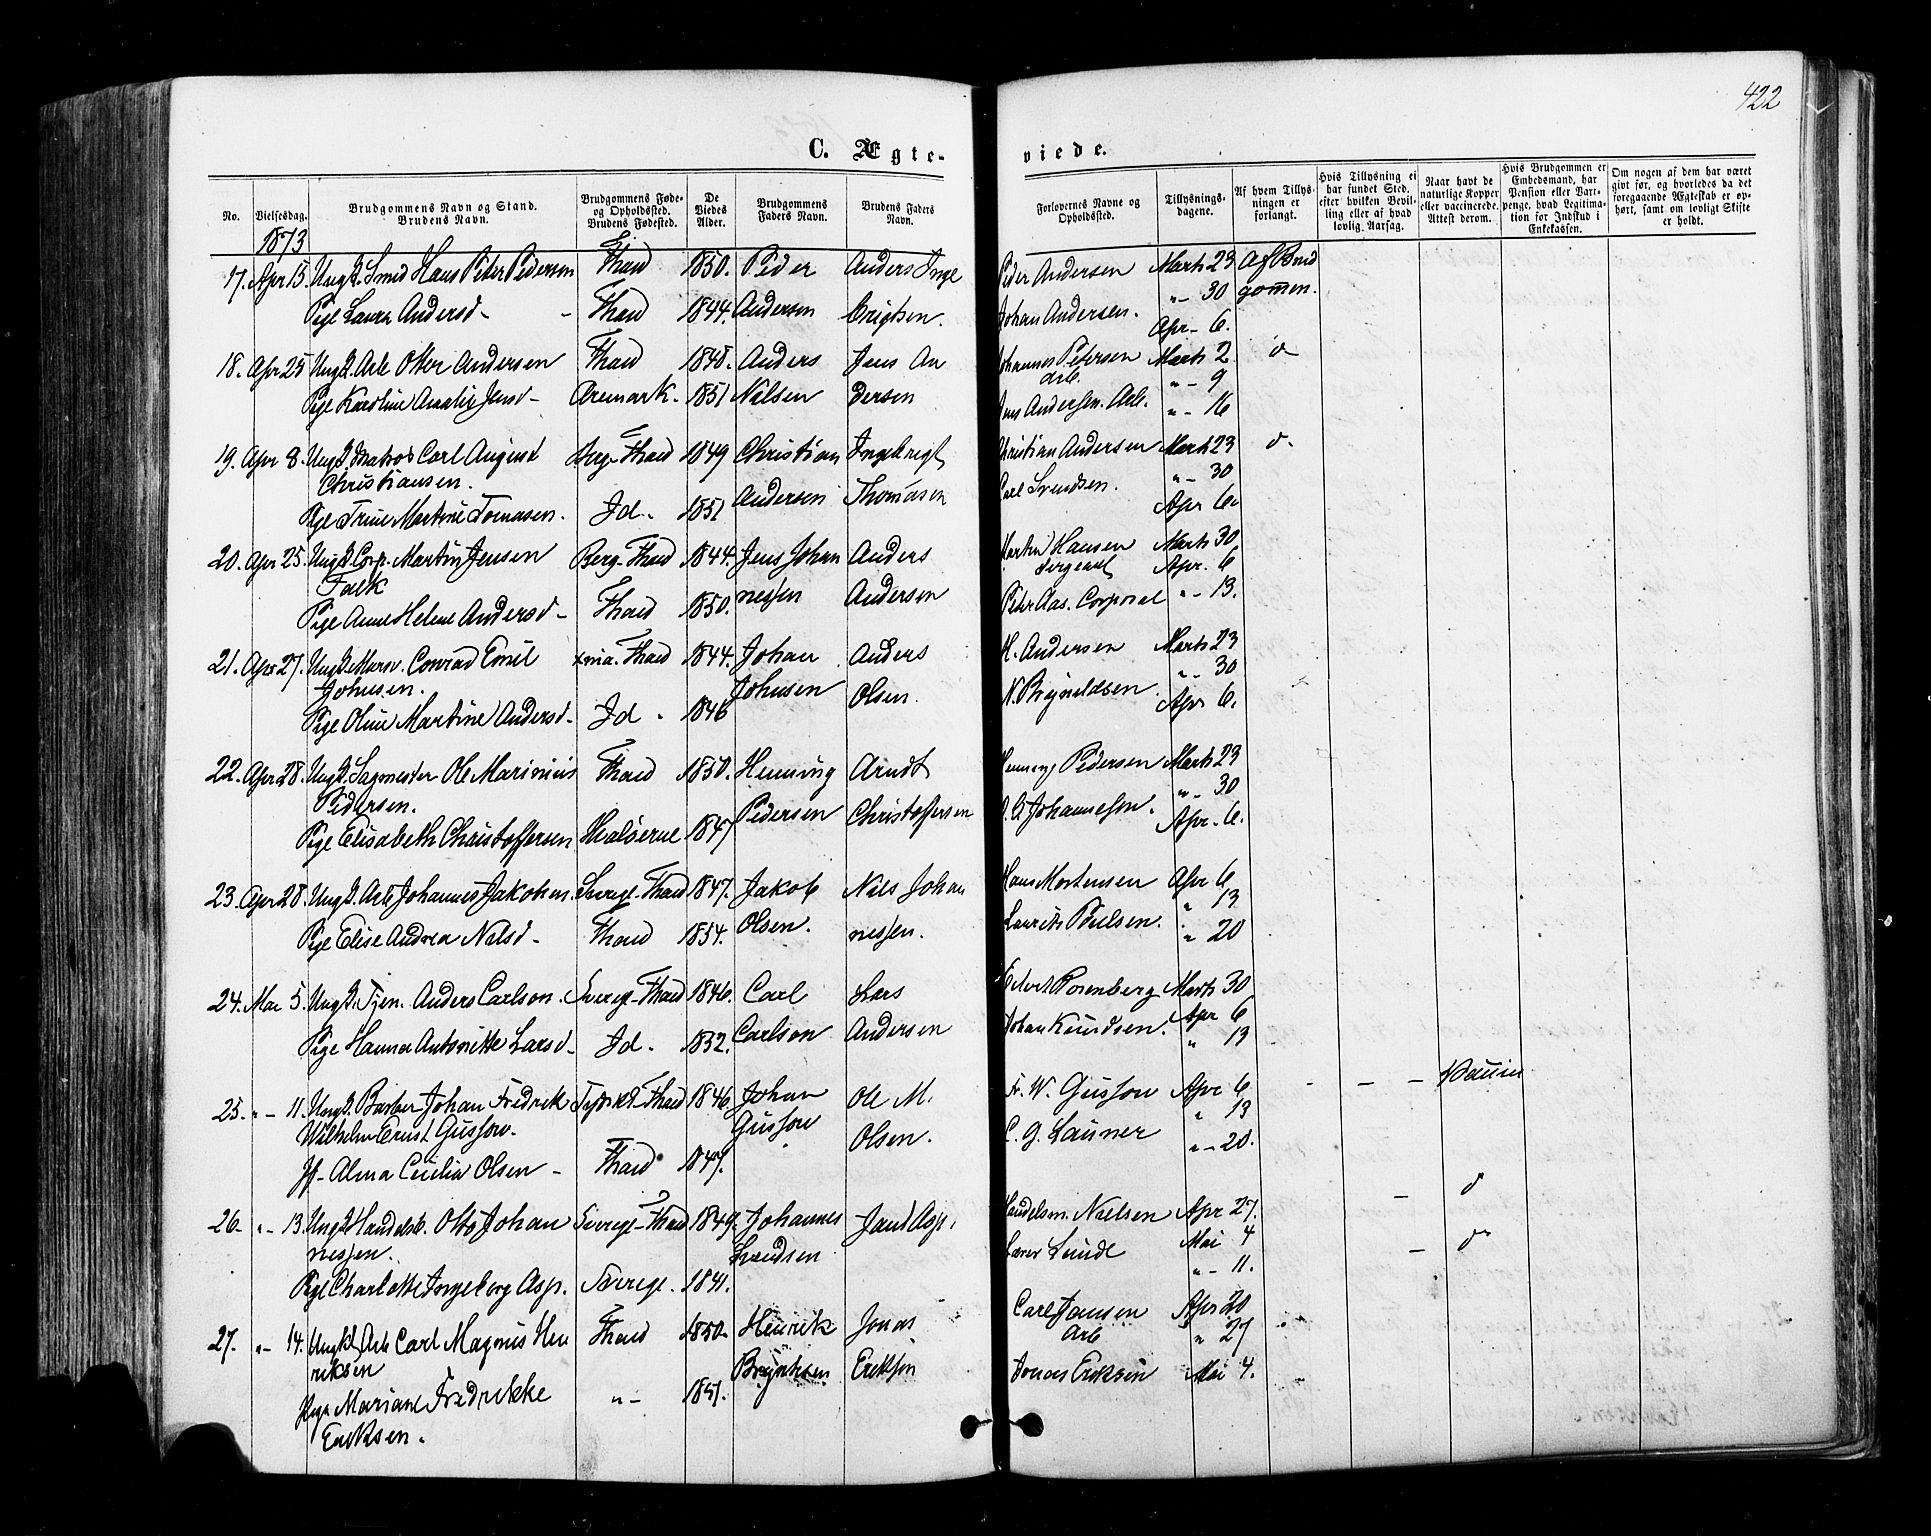 422
C. Ægte-
viede.
No.
Vielsesdag.
Brudgommens Navn og Stand.
Brudens Navn.
Brudgommens Føde-
og Opholdssted.
Brudens Fødested.
De
Viedes
Alder.
Brudgommens
Faders Navn.
Brudens Faders
Navn.
Forlovernes Navne og
Opholdssted.
Tillysnings-
dagene.
Af hvem Tillys-
ningen er
forlangt.
Hvis Tillysning ei
har fundet Sted,
efter hvilken Bevil-
ling eller af hvad
lovlig Aarsag.
Naar havt de
naturlige Kopper
eller vaccinerede.
Attest derom.
Hvis Brudgommen er
Embedsmand, har
Pension eller Vart-
penge, hvad Legitima-
tion for Indskud i
Enkekassen.
Om nogen af dem har været
givt før, og hvorledes da det
foregaaende Ægteskab er op-
hørt, samt om lovligt Skifte
er holdt.
1873
17. Apr 15. Ungk. Smed Hans Peter Pedersen Fhald 1850. Peder Anders Inge Peder Andersen Marts 23 Af Brud
" - 30 gommen.
Pige Laura Andersd - Fhald 1844. Andersen brigtsen. Johan Andersen.
Apr - 6.
18. Apr 25 Ungk. Arb Otter Andersen Fhald 1848. Anders Jens An Johannes Petersen Marts 2. d
arb. " - 9
Pige Karoline Amalie Jensd - Aremark. 1851 Nilsen dersen Jens Andersen. Arb. " - 16
19. Apr 8. Ungk. Matros Carl August Berg - Fhald 1849 Christian Ingebrigt Christian Andersen Marts 23 d.
Christiansen. " - 30
Andersen Thomasen Carl Svendsen.
Pige Trine Martine Tomasen. Id. 1851 Apr 6.
20. Apr 25. Ungk. Corp. Martin Jensen Berg - Fhald 1844. Jens Johan Anders Morten Hansen Marts 30
Falk nessen Andersen Sergeant Apr. 6
Pige Anne Helene Andersd - Fhald 1850. Peter Aas. Corporal " - 13.
21. Apr 27. Ungk. Conrad Emil Fhald 1844. Johan Anders H. Andersen Marts 23
Johnsen. Johnsen Olsen. " - 30
Pige Oline Martine Andersd - Id. 1846 Apr 6.
22. Apr 28. Ungk. Sagmester Ole Marinius Fhald 1850. Henning Arndt Henning Pedersen Marts 23
Pedersen. Pedersen Christoffersen " - 30
Johannesen. Apr - 6.
Pige Elisabeth Christoffersen Hvaløerne 1847
23. Apr 28. Ungk. Arb Johannes Jakobsen. Sverge - Fhald 1847. Jakob Nils Johan Hans Mortensen Apr 6
" 13
Pige Elise Andrea Nilsd - Fhald 1854. Olsen. nessen. Laurits Poulsen. " 20
24. Mai 5. Ungk. Tjen. Anders Carlson. Sverge - Fhald 1846. Carl Lars Edvard Rosenberg Marts 30
Apr 6
Pige Hanna Antonitte Larsd - Id. 1832. Carlson Andersen Johan Knudsen. " 13
25. " - 11. Ungk. Barber Johan Fredrik Tydskl - Fhald 1846 Johan Ole M. Fr. W. Gussow Apr 6 - - -
Wilhelm Ernst Gussow. Gussow Olsen. " 13
C. G. Launer " - 20.
Jf - Alma Cecilia Olsen - Fhald 1847. - d
26 - " - 13. Ungk. Handelsb. Otto Johan Sverge - Fhald 1849. Johannes Jant Asp. Handelsm. Nielsen Apr 27.
nessen. Svendsen Lærer Lunde Mai 4 - d
" - 11.
Pige Charlotte Ingeborg Asp. Sverge. 1841.
27. " - 14. Ungk. Arb Carl Magnus Hen Fhald 1850. Henrik Jonas Carl Jansen Apr 20
riksen Arb " 27
Erikson Jonas Eriksen Mai 4.
Pige Mariane Fredrikke " - 1851.
Eriksen.